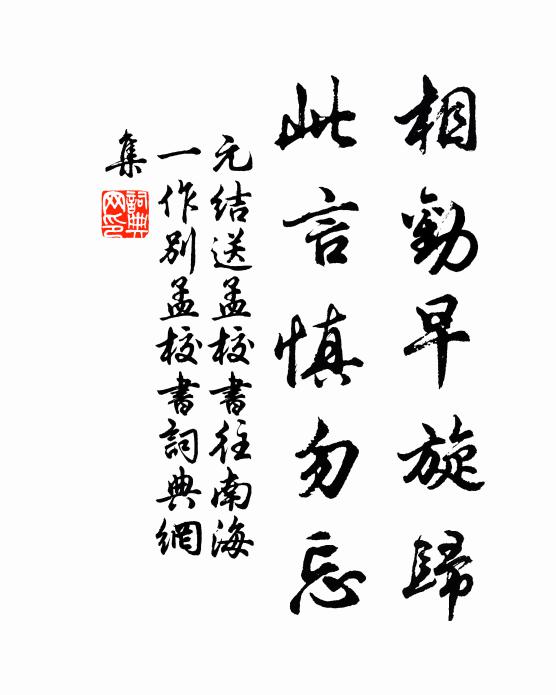 相勸早旋歸
此言慎勿忘
元結送孟校書往南海
一作別孟校書詞典網
集
詞典
網印